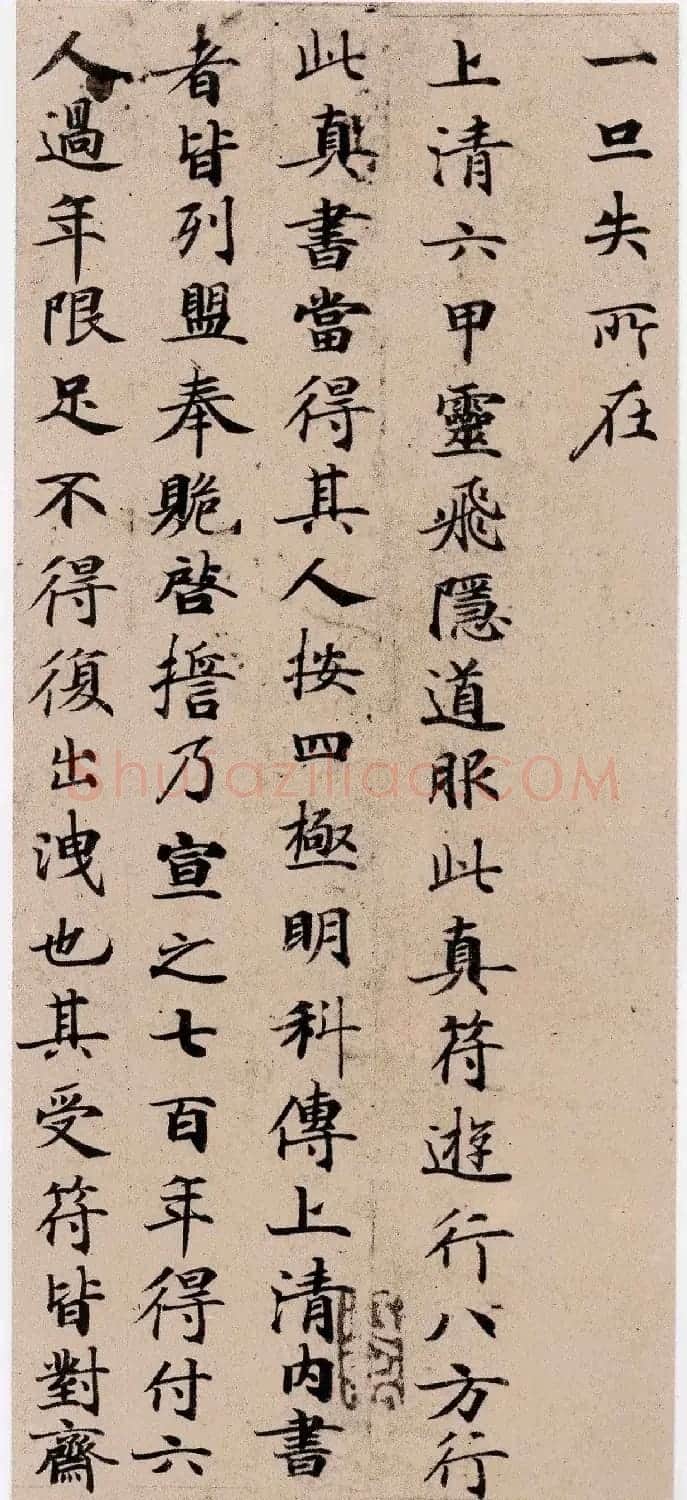 一旦失所在
上清六甲靈飛隱道服此真符遊行八方行
此真書當得其人按四極明科傳上清內書
者皆列盟奉贉啓擔乃宣之七百年得付六
人過年限足不得復出洩也其受符皆對齋
Shufaziliao.COM